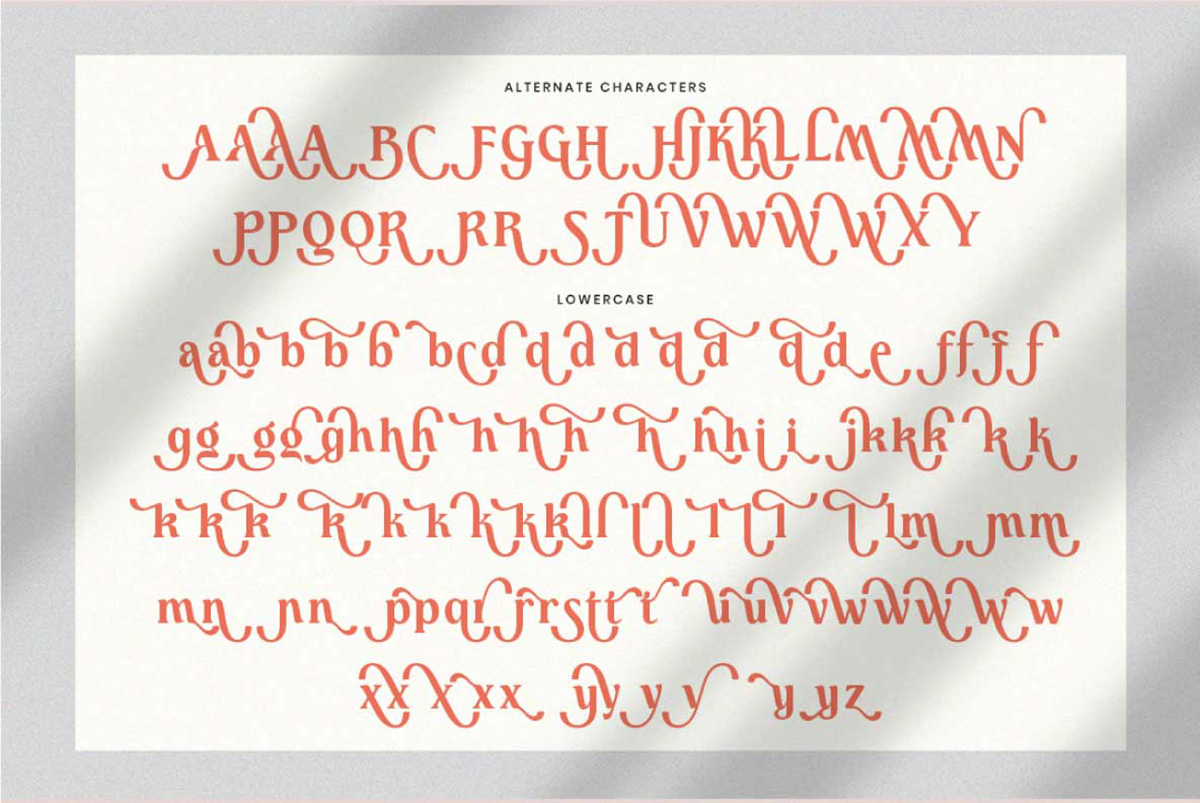 ALTERNATE CHARACTERS
AAAA BC FGGH HJKKLLMMMN
PPQQR RR STUVWWWXY
LOWERCASE
aabbbb bcddddddd dde ffff
gg ggghhhhhh h hhii jkkkkk
kkk kkkkkkllllllll llm mm
mn nn ppqrrrsttt uuvvwwwww
xxxxx yyyy yyz